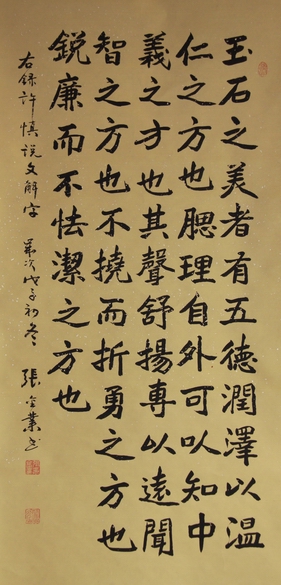 玉石之美者有五德潤澤以温
仁之方也腮理自外可以知中
義之才也其聲舒揚專以遠聞
智之方也不撓而折勇之方也
銳廉而不怯潔之方也
右錄許慎說文解字 歲次戊子初冬 張金業书